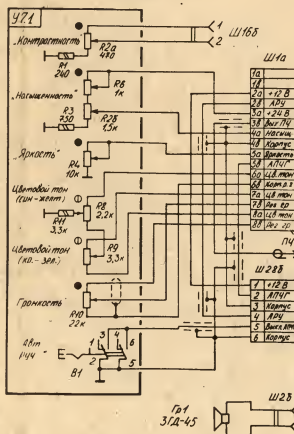 У7.1
„Контрастность"
R1
240
R2а
470
1
2
Ш16б
„Насыщенность"
R6
1к
R3
750
R2б
1,5к
„Яркость"
R4
10к
Цветовой тон
(син-желт)
R8
2,2к
R11
3,3к
Цветовой тон
(кр.-зел.)
R9
3,3к
Громкость"
R10
22к
Авт
руч
1
3
4
6
2
5
В1
Ш1а
1а
1б
2а +12 В
2б АРУ
3а +24 В
3б Вкл ПЧ
4а Насыщ
4б Корпус
5а Яркость
5б АПЧГ
6а Цв. тон
6б
7а Цв тон
7б Рег гр
8а Цв тон
8б Рег гр
ПЧ
Ш28б
1 +12 В
2 АПЧГ
3 Корпус
4 АРУ
5
6 Корпус
Гр1
3ГД-45
Ш2б